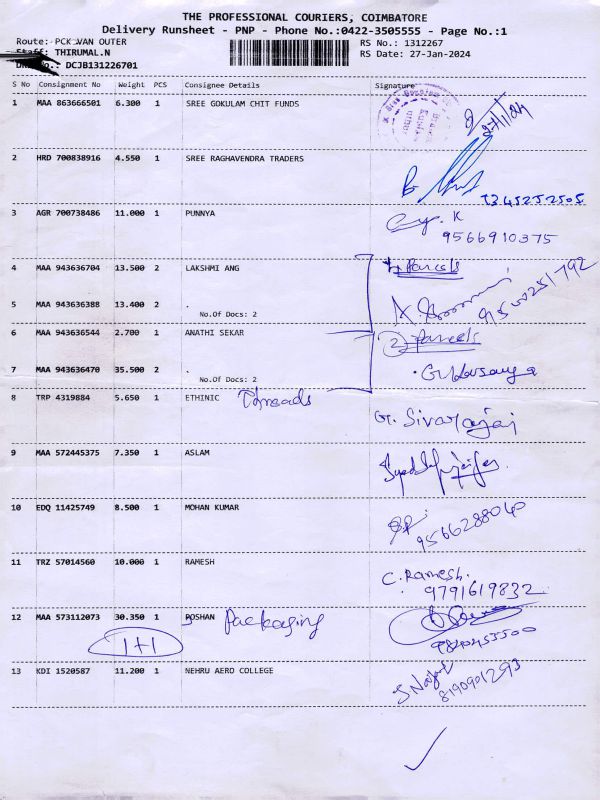 THE PROFESSIONAL COURIERS, COIMBATORE
Delivery Runsheet - PNP - Phone No.:0422-3505555 - Page No.:1
Route: PCK VAN OUTER RS No.: 1312267
Staff: THIRUMAL.N RS Date: 27-Jan-2024
No.: DCJB131226701
S No Consignment No Weight PCS Consignee Details Signature
1 MAA 863666501 6.300 1 SREE GOKULAM CHIT FUNDS
27/1/24
2 HRD 700838916 4.550 1 SREE RAGHAVENDRA TRADERS
3 AGR 700738486 11.000 1 PUNNYA
K
9566910375
4 MAA 943636704 13.500 2 LAKSHMI ANG
Parcels
5 MAA 943636388 13.400 2 .
No.Of Docs: 2
6 MAA 943636544 2.700 1 ANATHI SEKAR
2 parcels
7 MAA 943636470 35.500 2 .
No.Of Docs: 2
8 TRP 4319884 5.650 1 ETHINIC Threads
G. Sivarajaj
9 MAA 572445375 7.350 1 ASLAM
10 EDQ 11425749 8.500 1 MOHAN KUMAR
9566288040
11 TRZ 57014560 10.000 1 RAMESH
C. Ramesh.
9791619832
12 MAA 573112073 30.350 1 POSHAN Packaging
1+1
13 KDI 1520587 11.200 1 NEHRU AERO COLLEGE
8190901293